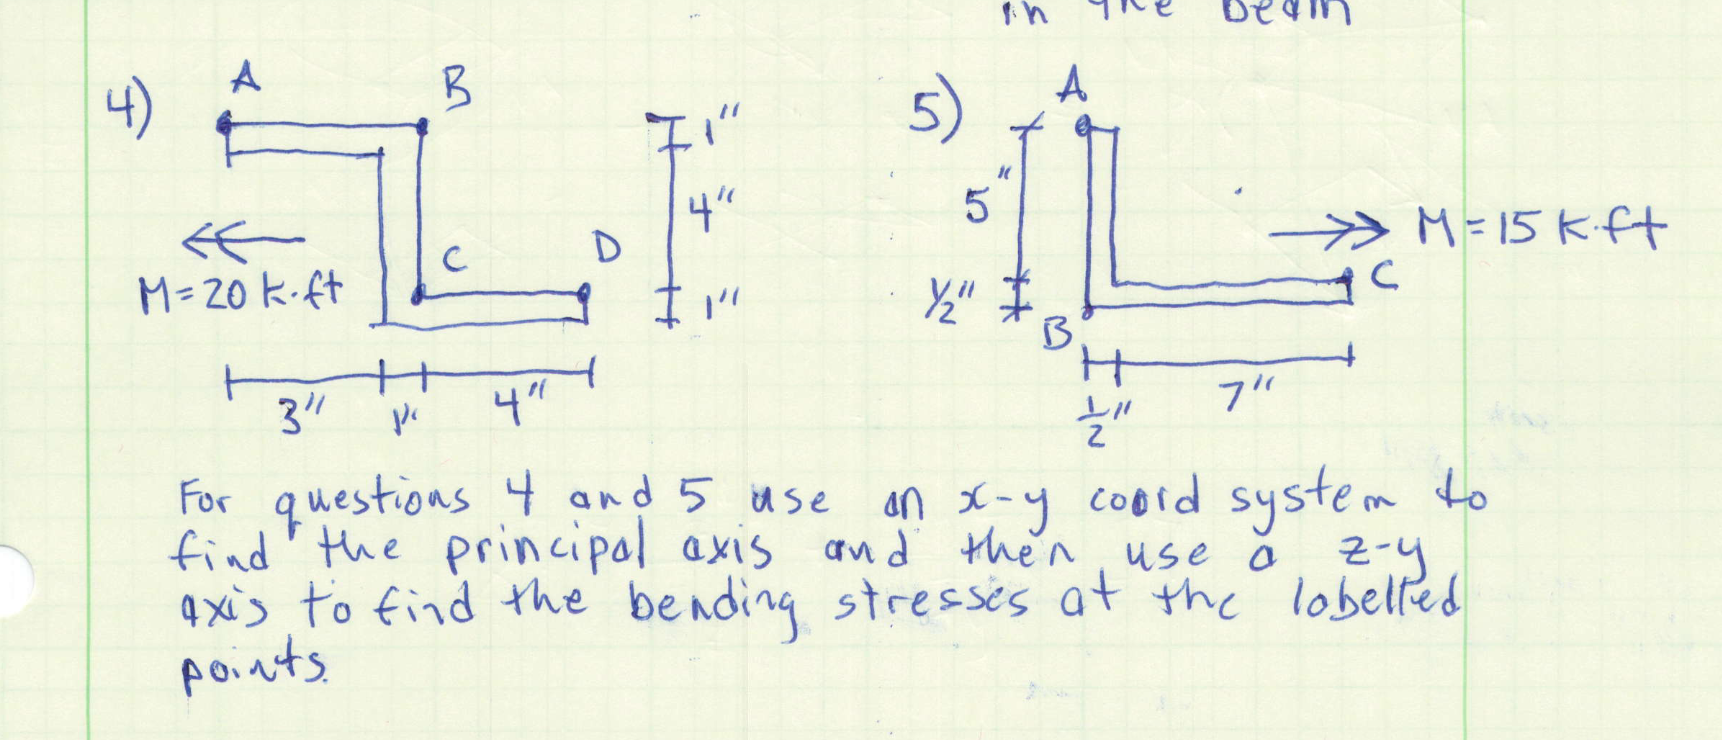 in the beam
4)
A
B
1"
4"
C
D
M=20 k·ft
1"
3"
1"
4"
5)
A
5"
M=15 k·ft
C
1/2"
B
1/2"
7"
For questions 4 and 5 use an x-y coord system to
find the principal axis and then use a z-y
axis to find the bending stresses at the labelled
points.